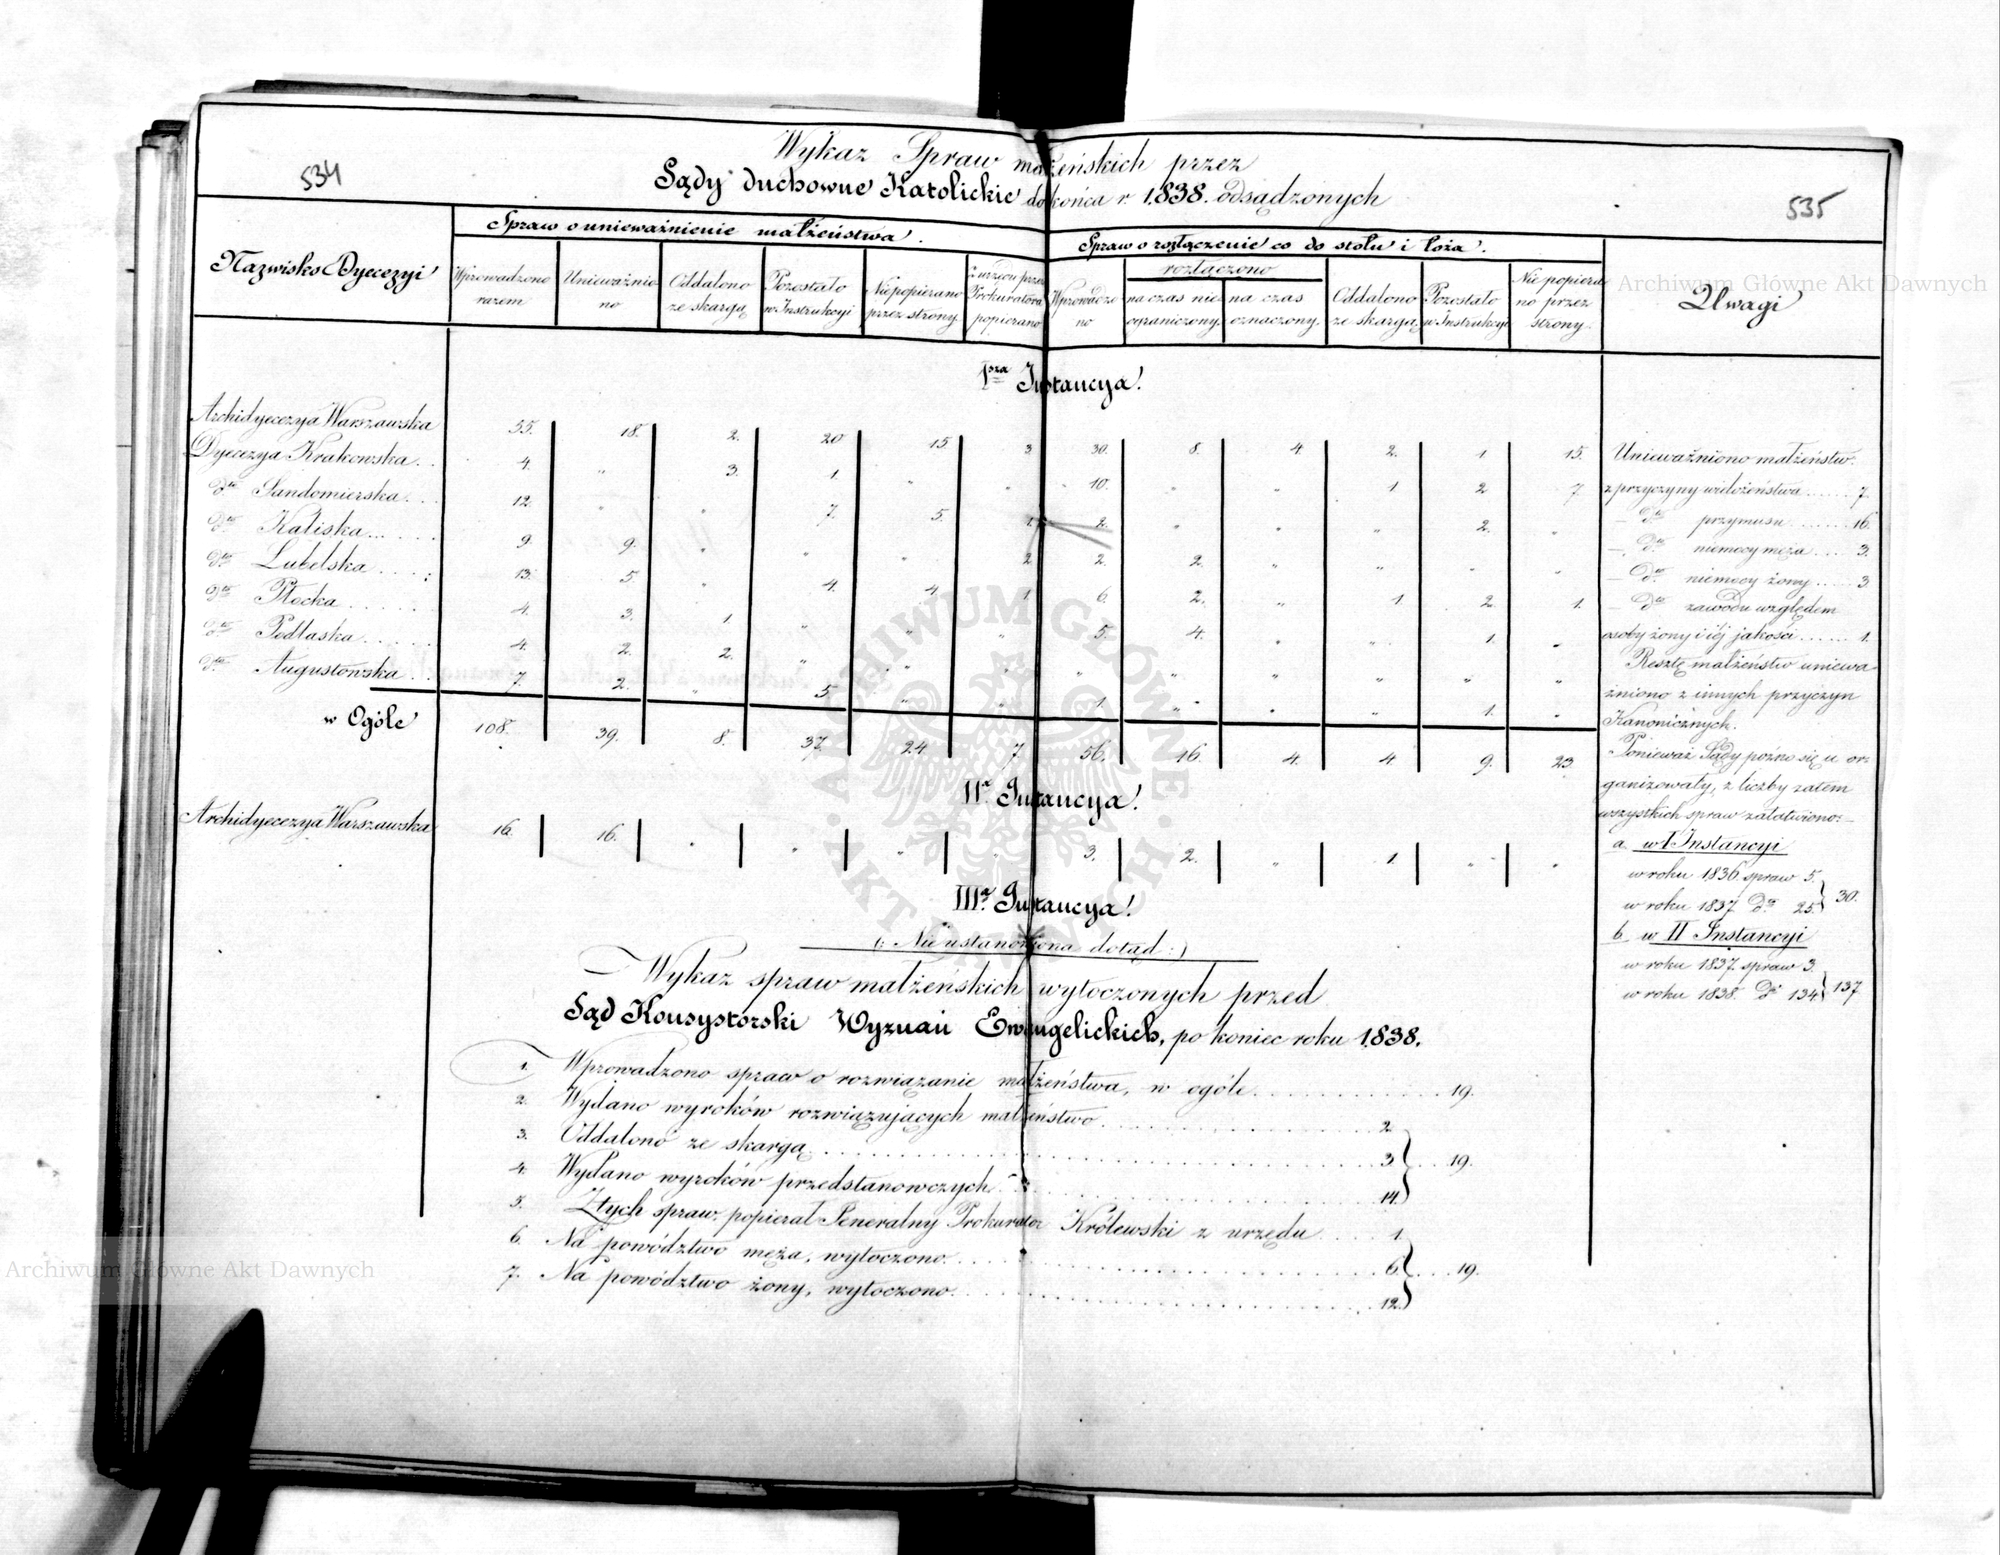 534
535
Wykaz Spraw małżeńskich przez
Sądy duchowne Katolickie do końca r. 1838. odsądzonych
Nazwisko Dyecezyi
Spraw o unieważnienie małżeństwa.
Wprowadzono razem
Unieważnio no
Oddalono ze skargą
Pozostało w Instrukcyi
Niepopierano przez strony
Z urzędu przez Prokuratora popierano
Spraw o rozłączenie co do stołu i łoża.
Wprowadzo no
rozłączono
na czas nie ograniczony
na czas oznaczony
Oddalono ze skargą
Pozostało w Instrukcyi
Nie popiera no przez strony
Uwagi
Iwsza Instancya
Archidyecezya Warszawska 55. 18. 2. 20 15 3 30. 8. 4 2. 1 15.
Dyecezya Krakowska . . 4. " 3. 1. " " 10. " " 1 2 7
dto Sandomierska . . . 12. " " 7. 5. 1. 2. " " " 2. "
dto Kaliska . . . . . 9. 9. " " " 2 2. 2. " " " "
dto Lubelska . . . . 13. 5. " 4. 4. 1 6. 2. " 1. 2. 1.
dto Płocka . . . . . 4. 3. 1. " " " 5. 4. " " 1. "
dto Podlaska . . . . 4. 2. 2. " " " " " " " " "
dto Augustowska . . 7. 2. " 5. " " 1. " " " 1. "
w Ogóle 108. 39. 8. 37. 24. 7 56. 16. 4. 4 9. 23.
IIa Instancya
Archidyecezya Warszawska 16. 16. " " " " 3. 2. " 1. " "
IIIa Instancya
(: Nie ustanowiona dotąd :)
Unieważniono małżeństw.
z przyczyny wielożeństwa . . . . . 7.
– dto przymusu . . . . . . 16.
– dto niemocy męża . . . . 3.
– dto niemocy żony . . . . . 3
– dto zawodu względem
osoby żony i jéj jakości . . . . . 1.
Resztę małżeństw uniewa
żniono z innych przyczyn
Kanonicznych.
Ponieważ Sądy poźno się u or
ganizowały, z liczby zatem
wszystkich spraw załatwiono: –
a. w I Instancyi
w roku 1836 spraw 5.
w roku 1837 dto 25. } 30.
b. w II Instancyi
w roku 1837 spraw 3.
w roku 1838. dto 134 } 137
Wykaz spraw małżeńskich wytoczonych przed
Sąd Konsystorski Wyznań Ewangelickich, po koniec roku 1838.
1. Wprowadzono spraw o rozwiązanie małżeństwa, w ogóle . . . . . . . . . . 19.
2. Wydano wyroków rozwiązujących małżeństwo . . . . . . . . . . 2
3. Oddalono ze skargą . . . . . . . . . . 3 } . . . 19.
4. Wydano wyroków przedstanowczych . . . . . . . . . . 14.
5. Z tych spraw, popierał Generalny Prokurator Królewski z urzędu . . . . 1.
6. Na powództwo męża, wytoczono . . . . . . . . . . 6. } . . . 19.
7. Na powództwo żony, wytoczono . . . . . . . . . . 12.
ARCHIWUM GŁÓWNE AKT DAWNYCH
Archiwum Główne Akt Dawnych
Archiwum Główne Akt Dawnych